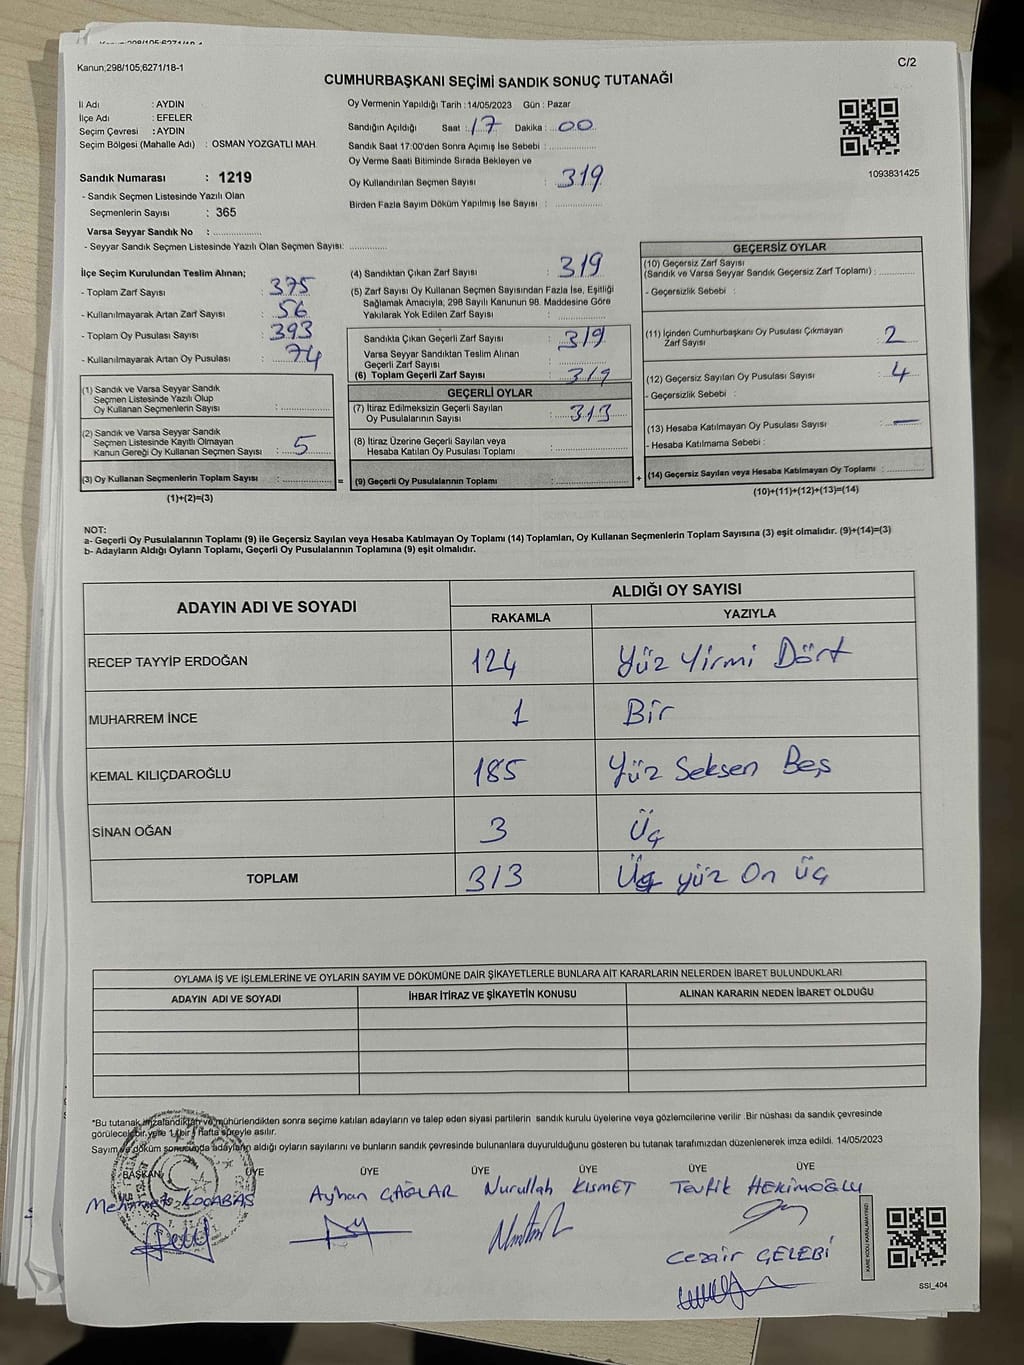 Kanun;298/105;6271/18-1
C/2
CUMHURBAŞKANI SEÇİMİ SANDIK SONUÇ TUTANAĞI
İl Adı : AYDIN
İlçe Adı : EFELER
Seçim Çevresi : AYDIN
Seçim Bölgesi (Mahalle Adı) : OSMAN YOZGATLI MAH.
Sandık Numarası : 1219
- Sandık Seçmen Listesinde Yazılı Olan
Seçmenlerin Sayısı : 365
Varsa Seyyar Sandık No : ..................
- Seyyar Sandık Seçmen Listesinde Yazılı Olan Seçmen Sayısı: ..............
Oy Vermenin Yapıldığı Tarih : 14/05/2023 Gün : Pazar
Sandığın Açıldığı Saat : 17 Dakika : 00
Sandık Saat 17:00'den Sonra Açımış İse Sebebi : ................
Oy Verme Saati Bitiminde Sırada Bekleyen ve
Oy Kullandırılan Seçmen Sayısı : 319
Birden Fazla Sayım Döküm Yapılmış İse Sayısı : ................
1093831425
İlçe Seçim Kurulundan Teslim Alınan;
- Toplam Zarf Sayısı : 375
- Kullanılmayarak Artan Zarf Sayısı : 56
- Toplam Oy Pusulası Sayısı : 393
- Kullanılmayarak Artan Oy Pusulası : 74
(1) Sandık ve Varsa Seyyar Sandık
Seçmen Listesinde Yazılı Olup
Oy Kullanan Seçmenlerin Sayısı : ................
(2) Sandık ve Varsa Seyyar Sandık
Seçmen Listesinde Kayıtlı Olmayan
Kanun Gereği Oy Kullanan Seçmen Sayısı : 5
(3) Oy Kullanan Seçmenlerin Toplam Sayısı : ................
(1)+(2)=(3)
(4) Sandıktan Çıkan Zarf Sayısı : 319
(5) Zarf Sayısı Oy Kullanan Seçmen Sayısından Fazla İse, Eşitliği
Sağlamak Amacıyla, 298 Sayılı Kanunun 98. Maddesine Göre
Yakılarak Yok Edilen Zarf Sayısı : ................
Sandıkta Çıkan Geçerli Zarf Sayısı : 319
Varsa Seyyar Sandıktan Teslim Alınan
Geçerli Zarf Sayısı : ................
(6) Toplam Geçerli Zarf Sayısı : 319
GEÇERLİ OYLAR
(7) İtiraz Edilmeksizin Geçerli Sayılan
Oy Pusulalarının Sayısı : 313
(8) İtiraz Üzerine Geçerli Sayılan veya
Hesaba Katılan Oy Pusulası Toplamı : ................
= (9) Geçerli Oy Pusulalarının Toplamı : ................
GEÇERSİZ OYLAR
(10) Geçersiz Zarf Sayısı
(Sandık ve Varsa Seyyar Sandık Geçersiz Zarf Toplamı) : ............
- Geçersizlik Sebebi :
(11) İçinden Cumhurbaşkanı Oy Pusulası Çıkmayan
Zarf Sayısı : 2
(12) Geçersiz Sayılan Oy Pusulası Sayısı : 4
- Geçersizlik Sebebi :
(13) Hesaba Katılmayan Oy Pusulası Sayısı : —
- Hesaba Katılmama Sebebi :
+ (14) Geçersiz Sayılan veya Hesaba Katılmayan Oy Toplamı : ............
(10)+(11)+(12)+(13)=(14)
NOT:
a- Geçerli Oy Pusulalarının Toplamı (9) ile Geçersiz Sayılan veya Hesaba Katılmayan Oy Toplamı (14) Toplamları, Oy Kullanan Seçmenlerin Toplam Sayısına (3) eşit olmalıdır. (9)+(14)=(3)
b- Adayların Aldığı Oyların Toplamı, Geçerli Oy Pusulalarının Toplamına (9) eşit olmalıdır.
ADAYIN ADI VE SOYADI
ALDIĞI OY SAYISI
RAKAMLA YAZIYLA
RECEP TAYYİP ERDOĞAN 124 Yüz Yirmi Dört
MUHARREM İNCE 1 Bir
KEMAL KILIÇDAROĞLU 185 Yüz Seksen Beş
SİNAN OĞAN 3 Üç
TOPLAM 313 Üç yüz On üç
OYLAMA İŞ VE İŞLEMLERİNE VE OYLARIN SAYIM VE DÖKÜMÜNE DAİR ŞİKAYETLERLE BUNLARA AİT KARARLARIN NELERDEN İBARET BULUNDUKLARI
ADAYIN ADI VE SOYADI İHBAR İTİRAZ VE ŞİKAYETİN KONUSU ALINAN KARARIN NEDEN İBARET OLDUĞU
*Bu tutanak imzalandıktan ve mühürlendikten sonra seçime katılan adayların ve talep eden siyasi partilerin sandık kurulu üyelerine veya gözlemcilerine verilir .Bir nüshası da sandık çevresinde
görülecek bir yere 1 (bir) hafta süreyle asılır.
Sayım ve döküm sonucunda adayların aldığı oyların sayılarını ve bunların sandık çevresinde bulunanlara duyurulduğunu gösteren bu tutanak tarafımızdan düzenlenerek imza edildi. 14/05/2023
BAŞKAN ÜYE ÜYE ÜYE ÜYE ÜYE ÜYE
Mehmet KOCABAŞ Ayhan ÇAĞLAR Nurullah KISMET Tevfik HEKİMOĞLU
Cezair ÇELEBİ
KARE KODU KARALAMAYINIZ!
SSI_404